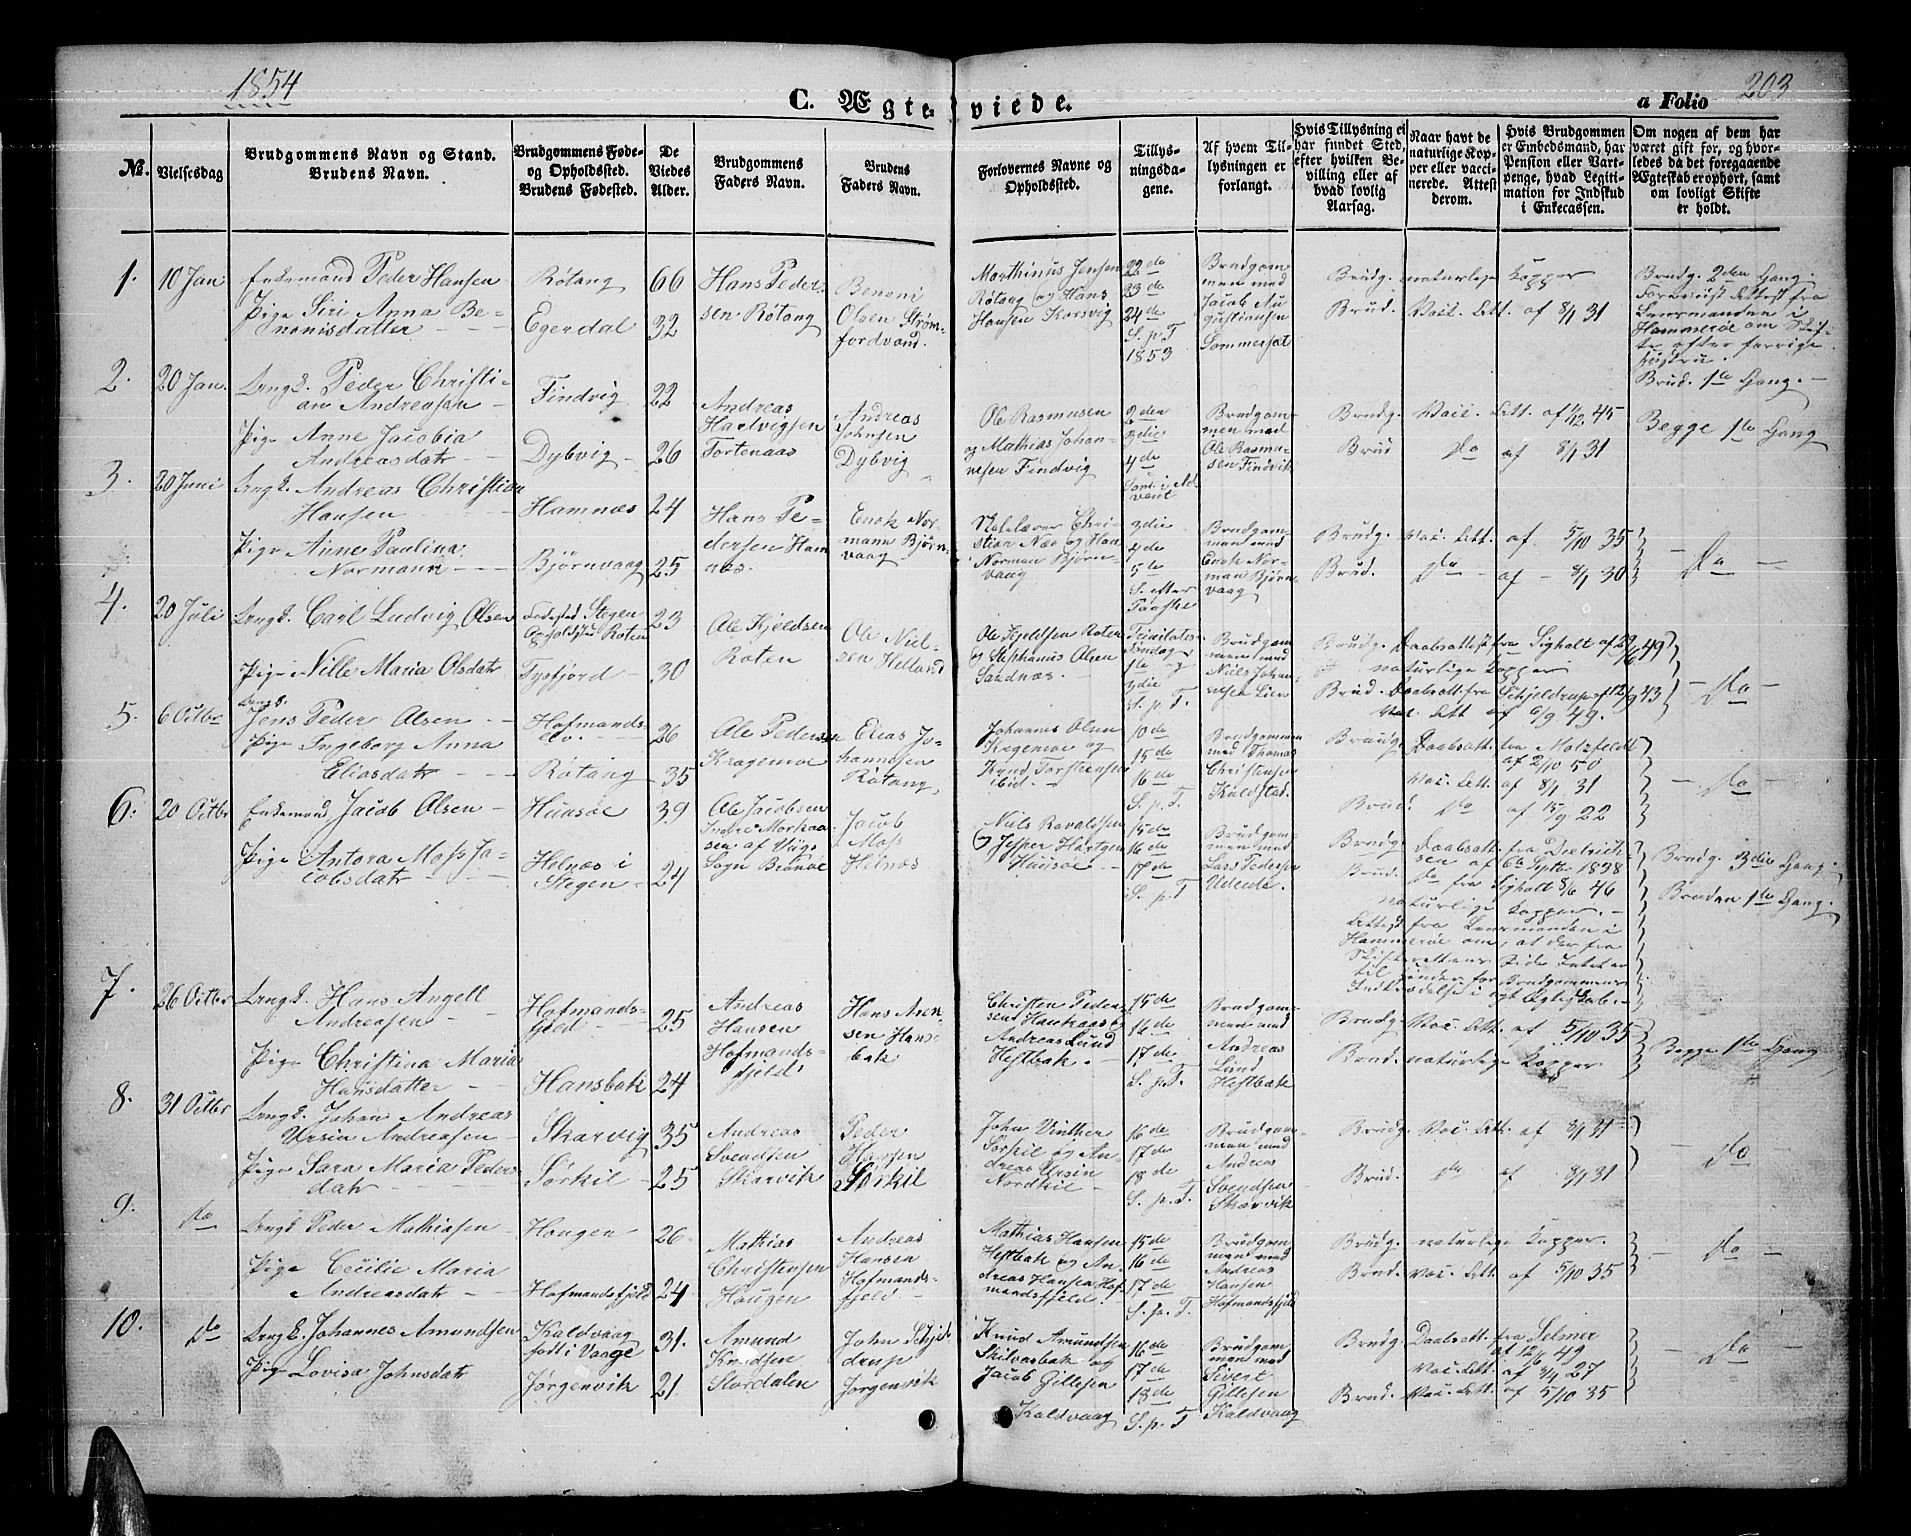 1854
203
C. Ægteviede.
a Folio
No.
Vielsesdag
Brudgommens Navn og Stand.
Brudens Navn.
Brudgommens Føde-
og Opholdsted.
Brudens Fødested.
De
Viedes
Alder.
Brudgommens
Faders Navn.
Brudens
Faders Navn.
Forlovernes Navne og
Opholdssted.
Tillys-
ningsda-
gene.
Af hvem Til-
lysningen er
forlangt.
Hvis Tillysning ei
har fundet Sted,
efter hvilken Be-
villing eller af
hvad lovlig
Aarsag.
Naar havt de
naturlige Kop-
per eller vacci-
nerede. Attest
derom.
Hvis Brudgommen
er Embedsmand, har
Pension eller Vart-
penge, hvad Legiti-
mation for Indskud
i Enkecassen.
Om nogen af dem har
været gift før, og hvor-
ledes da det foregaaende
Ægteskab er ophørt, samt
om lovligt Skifte
er holdt.
1.
10 Jan
Enkemand Peder Hansen
Pige Siri Anna Be-
nonisdatter
Røtang
Egerdal
66
32
Hans Peder-
sen Røtang
Benoni
Olsen Strøm-
fordvand.
Morthinus Jensen
Røtang og Hans
Hansen Korsvig
22de
23de
24de
S. p. T
1853
Brudgom
men med
Jacob Au-
gustinusen
Sommerset
Brudg. naturlige Kopper
Brud. Vaic. Att. af 8/1 31
Brudg. 2den Gang.
Forevist Attest fra
Lensmanden i
Hammerøe om Skif-
te efter forrige
Hustru.
Brud. 1te Gang.
2.
20 Jan.
Ungk. Peder Christi-
an Andreasen
Pige Anne Jacobia
Andreasdatr
Findvig
Dybvig
22
26
Andreas
Hartvigsen
Tortenaas
Andreas
Johnsen
Dybvig
Ole Rasmusen
og Mathias Johan-
nesen Findvig
2den
3die
4de
Sønd. i Ad-
vent
Brudgom-
men med
Ole Rasmu-
sen Findvik
Brudg. Vaic. Att. af 1/12 45
Brud Do af 8/1 31
Begge 1te Gang
3.
20 Juni
Ungk. Andreas Christian
Hansen
Pige Anne Paulina
Normann
Hamnæs
Bjørnvaag
24
25
Hans Pe-
dersen Ham
næs.
Enok Nor-
mann Bjørn-
vaag
Skolelærer Chri-
stian Næs og Han
Norman Bjørn-
vaag
3die
4de
5te
S. efter
Paaske
Brudgom-
men med
Enok Nor-
man Bjørn-
vaag
Brudg. Vac. Att. af 5/10 35
Brud. Do af 8/1 30
Do
4.
20 Juli
Ungk. Carl Ludvig Olsen
Pige Nille Maria Olsdatr
Fødested Stegen
Opholdsted Røten
Tysfjord
23
30
Ole Kjeldsen
Røten
Ole Niel-
sen Helland
Ole Kjeldsen Roten
og Stephanus Olsen
Sandnæs
Trinitatis
Søndag
1te og
3die
S. p. T.
Brudgom-
men med
Niels Johan-
nesen Lien
Brudg. Daabsattest fra Sighalt af 29/6 49
naturlige Kopper
Brud. Daabsatt. fra Schjeldrup af 12/9 43
Vac. Att af 6/9 49.
Do
5.
6 Octbr
Ungk.
Jens Peder Olsen
Pige Ingeborg Anna
Eliasdatr
Hofmands-
elv.
Røtang
26
35
Ole Pedersen
Kragemoe
Elias Jo-
hannesen
Røtang,
Johannes Olsen
Kragemoe og
Knud Torstensen
ibid.
10de
15de
16de
S. p. T.
Brudgommen
med Thomas
Christensen
Kaldstad.
Brudg. Daabsatt. fra Motzfeldt
af 2/10 50
Vac. Att. af 8/1 31
Brud. Do af 15/9 22
Do
6.
20 Octbr
Enkemand Jacob Olsen
Pige Antora Moss Ja-
cobsdatr
Hunsøe
Helnæs i
Stegen
39
24
Ole Jacobsen
Sogn Brønøe
Jacob
Moss
Helnæs
Niels Ravaldsen
og Jesper Hartgen
Hunsøe
15de
16de
17de
S. p. T
Brudgom-
men med
Lars Pedersen
Brudg. Daabsatt. fra Dietrich-
sen af 6te Septbr 1838
Brud. Do fra Sighalt 8/6 46
naturlige Kopper.
Attest fra Lensmanden i
Hammerøe om, at der fra
Skifterettens Side Intet er
til Hinder for Brudgommens
Indtrædelse i nyt Ægteskab.
Brudg. 3die Gang
Bruden 1te Gang.
7.
26 Octbr
Ungk. Hans Angell
Andreasen
Pige Christina Maria
Hansdatter
Hofmands-
fjeld
Hansbak
25
24
Andreas
Hansen
Hofmands-
fjeld
Hans Aren-
sen Hans-
bak
Christen Peder-
sen Haukaas og
Andreas Lund
Hestbak.
15de
16de
17de
S. p. T.
Brudgom-
men med
Andreas
Lund
Hestbak
Brudg. Vac. Att. af 5/10 35
Brud. naturlige Kopper
Begge 1te Gang
8.
31 Octbr
Ungk. Johan Andreas
Ursin Andreasen
Pige Sara Maria Peders-
datr
Skarvig
Sørkil
35
25
Andreas
Svendsen
Skarvik
Peder
Hansen
Sørkil
John Vinther
Sørkil og An-
dreas Ursin
Nordkil
16de
17de
18de
S. p. T.
Brudgom-
men med
Andreas
Svendsen
Skarvik
Brudg. Vac. Att. af 8/1 31
Brud. Do af 8/1 31
Do
9.
Do
Ungk Peder Mathiasen
Pige Cecilie Maria
Andreasdatr
Haugen
Hofmandsfjeld
26
24
Mathias
Christensen
Haugen
Andreas
Hansen
Hofmands-
fjeld
Mathias Hansen
Hestbak og An-
dreas Hansen Hof-
mandsfjeld.
15de
16de
17de
S. p. T.
Brudgom
men med
Andreas
Hansen
Hofmandsfjeld
Brudg. naturlige Kopper.
Brud. Vac. Att. af 5/10 35
Do
10.
Do
Ungk. Johannes Amundsen
Pige Lovisa Johnsdatr
Kaldvaag
født i Vaage
Jørgenvik
31.
21.
Amund
Knudsen
Stordalen
John Schjel-
drup
Jørgenvik
Knud Amundsen
Skilvasbak og
Jacob Gillesen
Kaldvaag
16de
17de
18de
S. p. T
Brudgom-
men med
Sivert
Gillesen
Kaldvaag
Brudg. Daabsatt. fra Selmer
af 12/6 49
Vac. Att. af 3/1 27
Brud. Vac. Att. af 5/10 35
Do